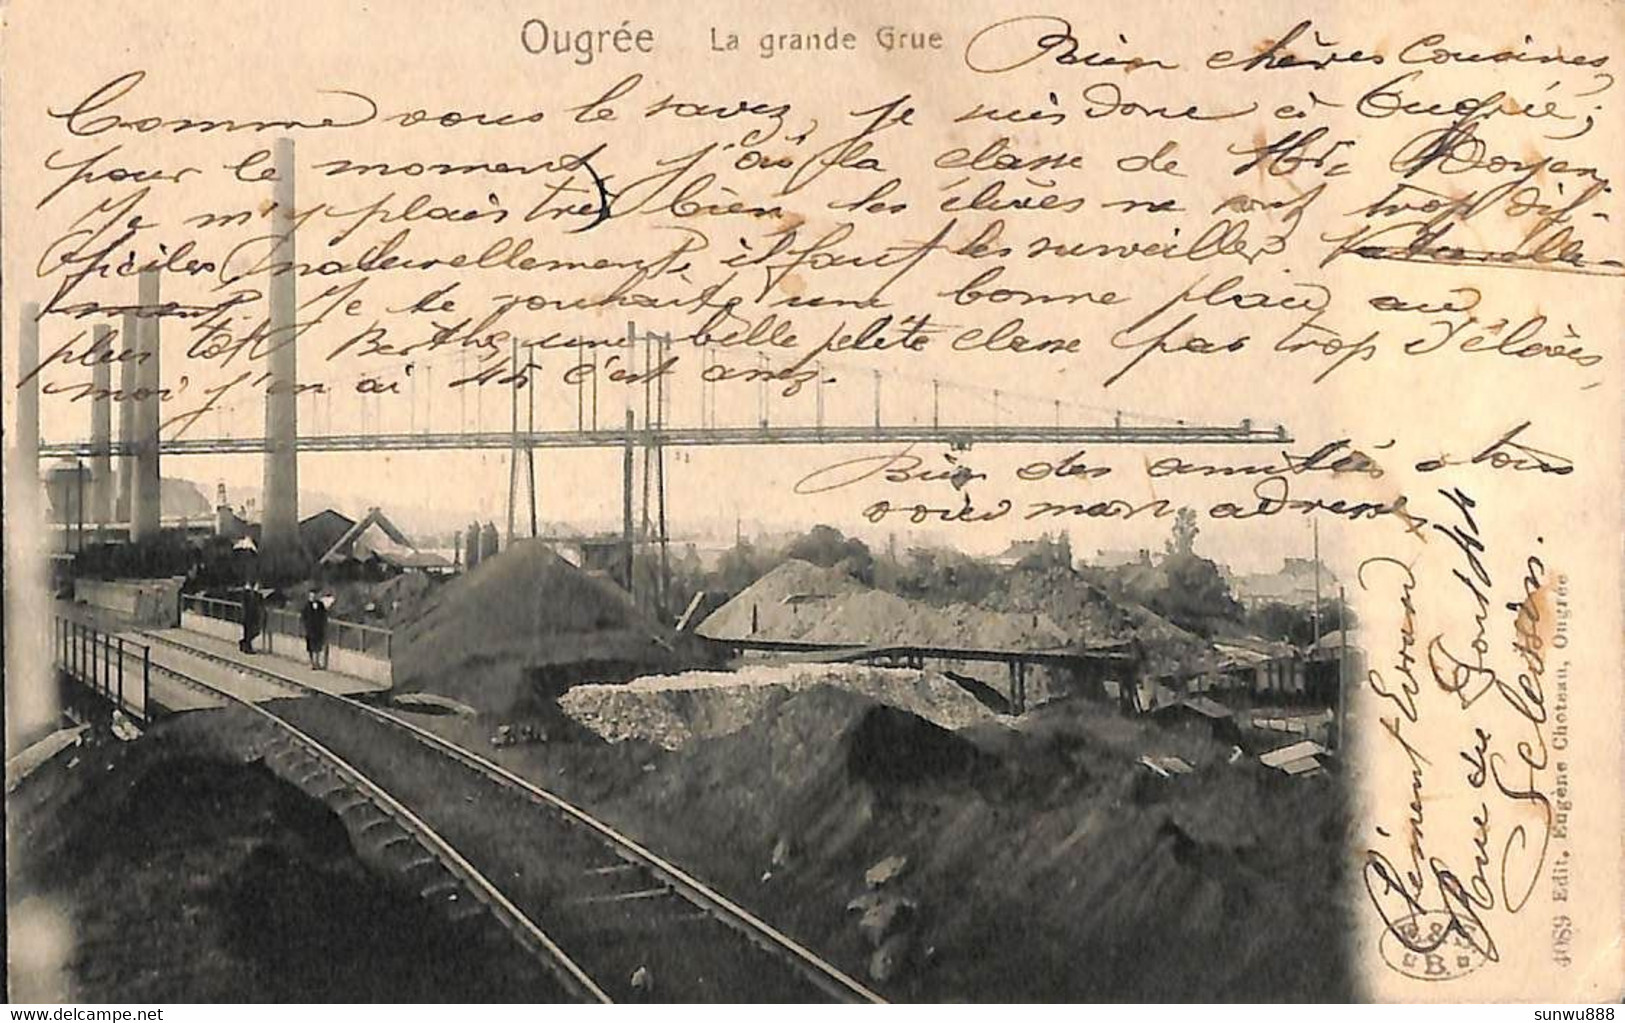 Ougrée La grande Grue
Bien chères Cousines,
Comme vous le savez, je suis donc à Ougrée;
pour le moment j'ai la classe de Mr Doyen.
Je m'y plais très bien les élèves ne sont trop dif-
ficiles naturellement, il faut les surveiller naturelle-
ment. Je te souhaite une bonne place au
plus tôt Berthe, une belle petite classe pas trop d'élèves,
moi j'en ai 45 c'est assez.
Bien des amitiés à tous
voici mon adresse
Clément Evrard
Rue du Pont 44
Sclessin.
4089 Edit. Eugène Choteau, Ougrée
B.
www.delcampe.net
sunwu888